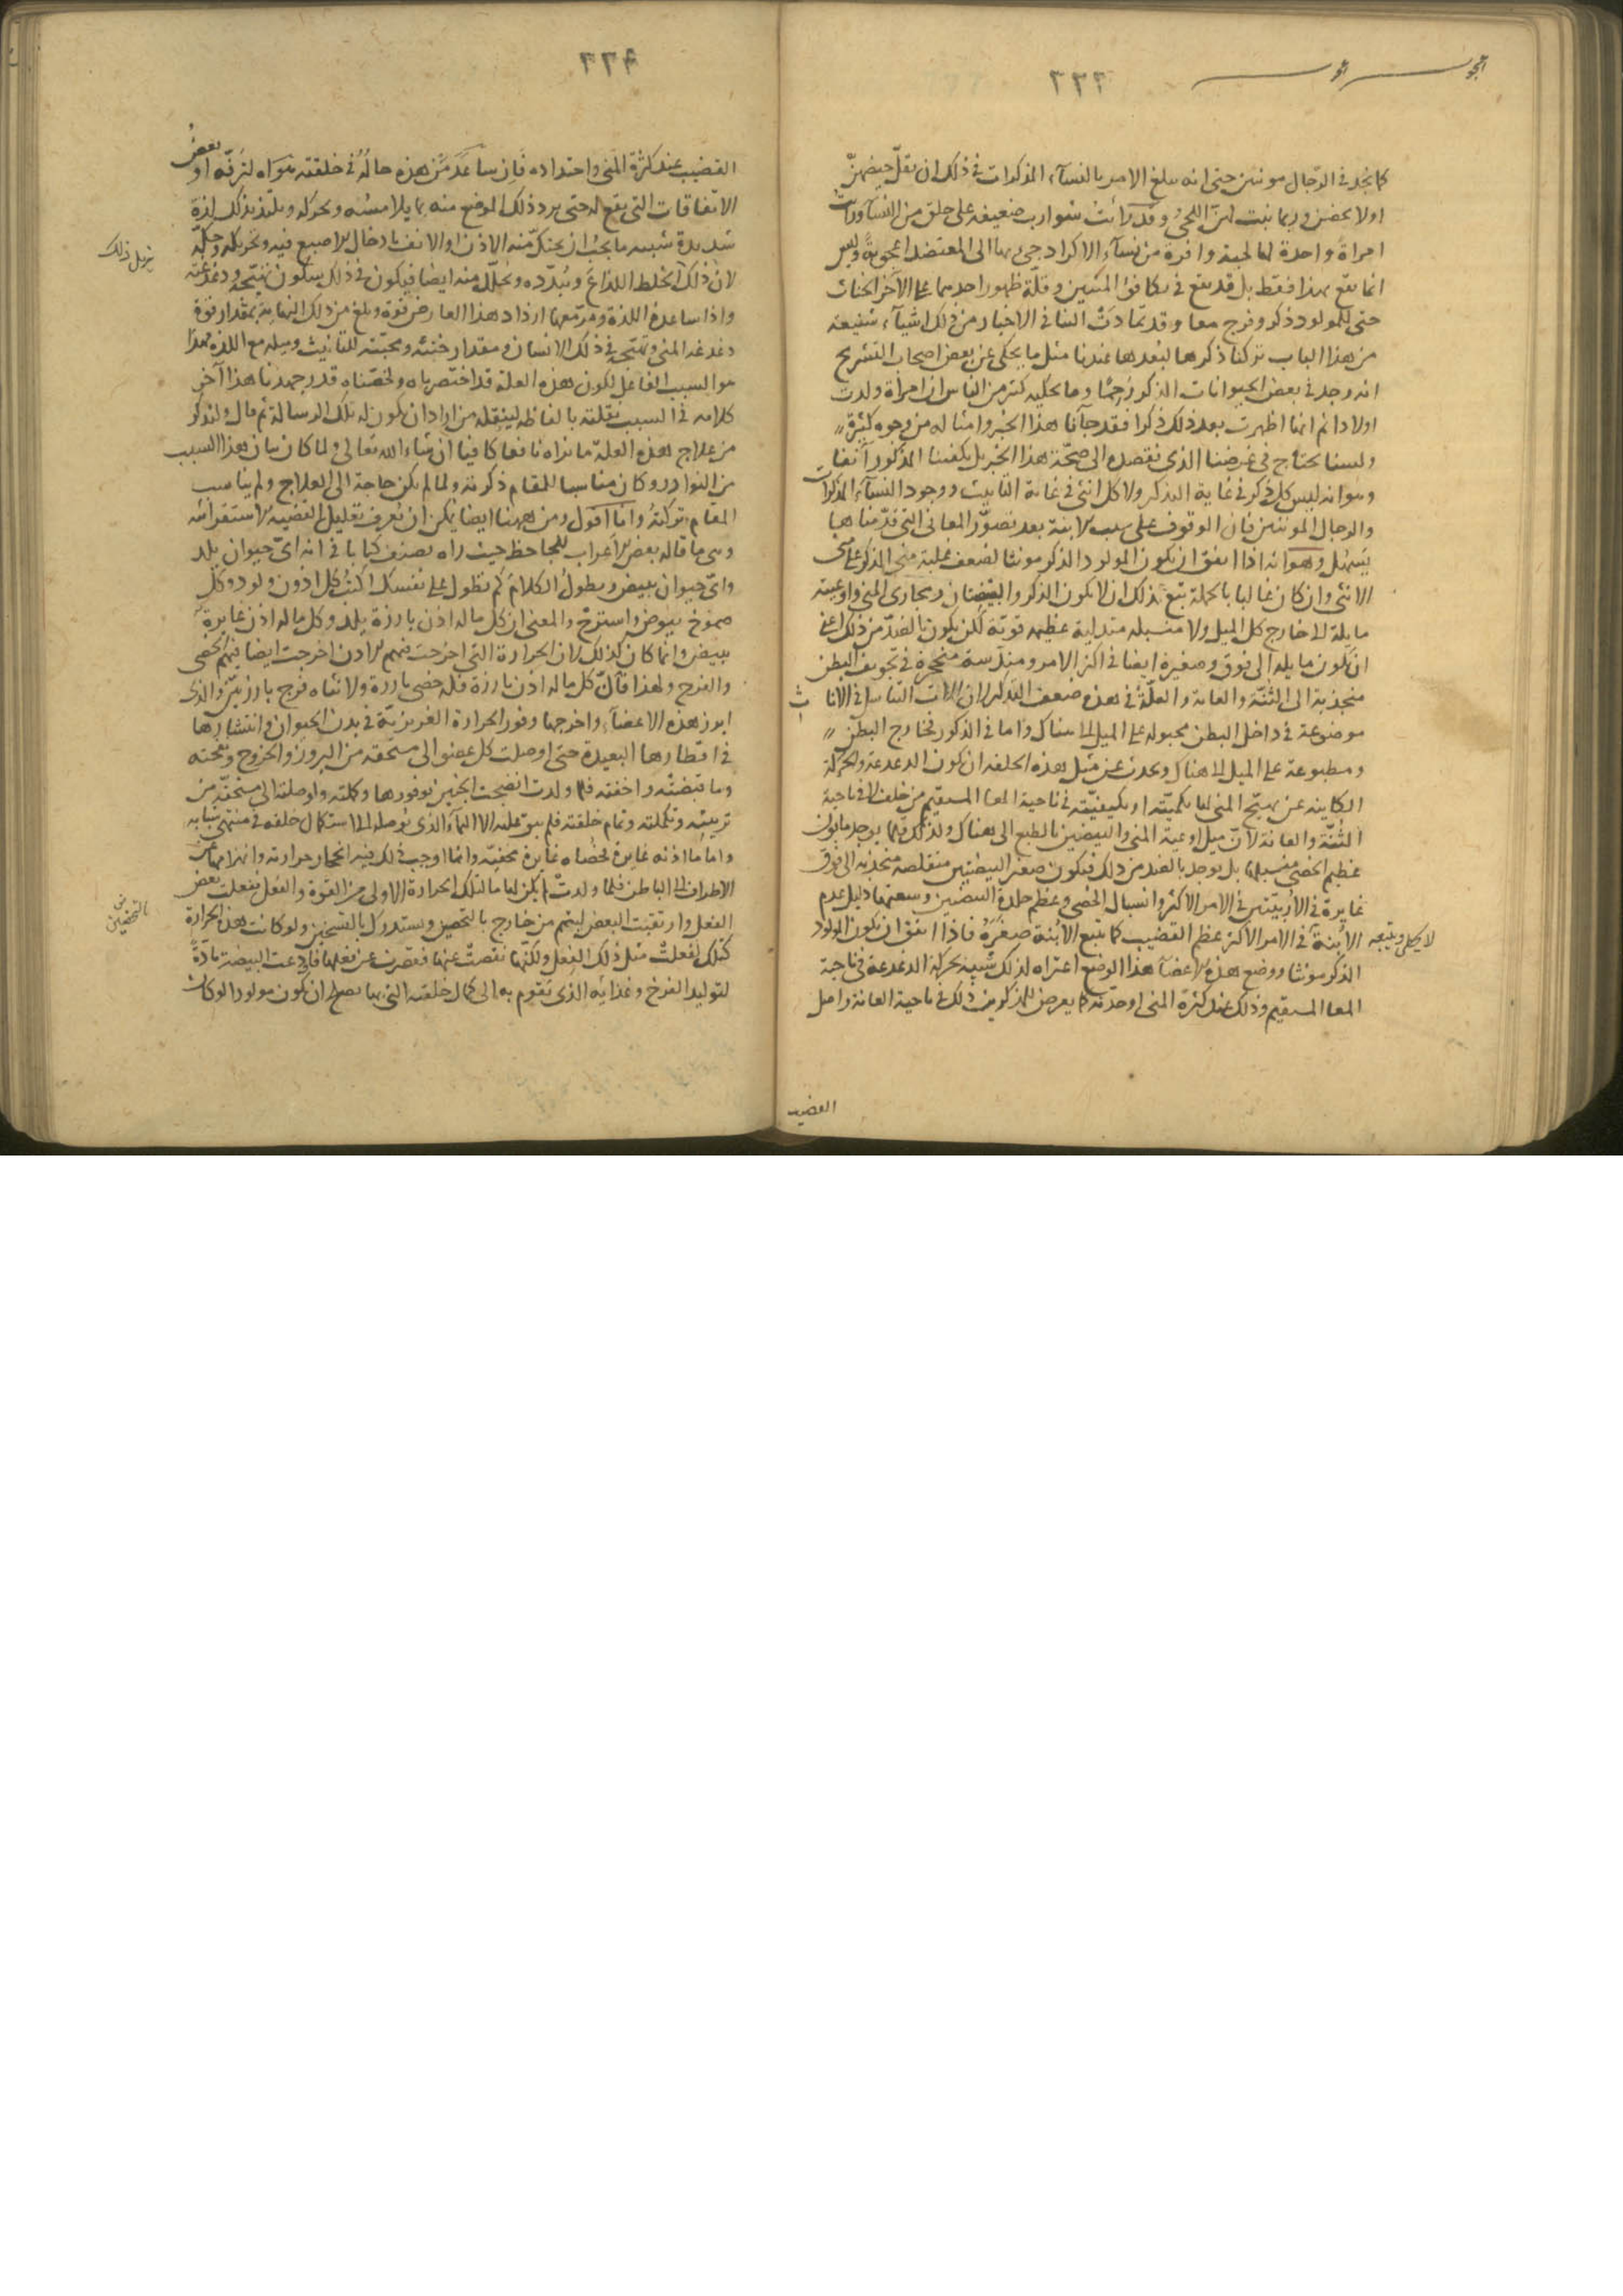 ٢٣٣
كما نجد في الرجال مونثين حتى انه يبلغ الامر بالنساء المذكرات في ذلك ان يقل حيضهن
اولا يحضن وربما نبت لهن اللحى وقد رأيت شوارب ضعيفة على خلق من النساء ورأيت
امراة واحدة لها لحية وافرة من نساء الاكراد جئ بها الى المعتضد اعجوبة وليس
انما يقع هذا فقط بل قد يقع في تكافؤ المنيين وقلة ظهور احدهما على الآخر الخناث
حتى للمولود ذكر وفرج معا وقد تمادت الينا في الاخبار من ذلك اشياء شنيعة
من هذا الباب تركنا ذكرها لبعدها عندنا مثل ما يحكى عن بعض اصحاب التشريح
انه وجد في بعض الحيوانات الذكور رحما وما يحكيه كثير من الناس ان امراة ولدت
اولادا ثم انها اظهرت بعد ذلك ذكرا فقد جآنا هذا الخبر وامثاله من وجوه كثيرة
ولسنا نحتاج في غرضنا الذي نقصده الى صحة هذا الخبر بل يكفينا المذكور آنفا
وهو انه ليس كل ذكر في غاية التذكير ولا كل انثى في غاية التانيث ووجود النسآء المذكرات
والرجال المونثين فان الوقوف على سبب الابنة بعد تصور المعاني التي قدمناها
يسهل وهو انه اذا اتفق ان يكون المولود الذكر مونثا لضعف غلبة مني الذكر على مني
الانثى وان كان غالبا بالجملة تبع ذلك ان لا يكون الذكر والبيضتان ومجاري المني واوعيته
مايلة الى خارج كل الميل ولا منسبلة متدلية عظيمة قوية لكن يكون بالضد من ذلك اعني
ان تكون مايلة الى فوق وصغيرة ايضا في اكثر الامر ومندسة منجحرة في تجويف البطن
منجذبة الى الثنة والعانة والعلة في هذه ضعف التذكير لان آلات التناسل في الاناث
موضوعة في داخل البطن مجبولة على الميل الى هناك واما في الذكور فخارج البطن
ومطبوعة على الميل الى هناك ويحدث عن مثل هذه الخلقة ان تكون الدغدغة والحركة
الكاينة عن تهيج المني لها بكميته او بكيفيته في ناحية المعا المستقيم من خلف لا في ناحية
الثنة والعانة لان ميل اوعية المني والبيضتين بالطبع الى هناك ولذلك قلما يوجد مابون
عظيم الخصى منسبلها بل يوجد بالضد من ذلك فيكون صغير البيضتين متقلصة منجذبة الى فوق
غايرة في الاربيتين في الامر الاكثر وانسبال الخصى وعظم جلدة البيضتين وسعتها دليل عدم
الابنة في الامر الاكثر عظم القضيب كما تتبع الابنة صغره فاذا اتفق ان يكون المولود
الذكر مونثا ووضع هذه الاعضآ هذا الوضع اعتراه لذلك شبيه بحركة الدغدغة في ناحية
المعا المستقيم وذلك عند كثرة المني او حدته كما يعرض للمذكرين ذلك في ناحية العانة واصل
القضيب
القضيب عند كثرة المني واحتداده فان ساعد من هذه حاله في خلقته هواه لترفه او بعض
الاتفاقات التي يقع له حتى يرد ذلك الموضع منه بما يلامسه ويحركه ويلتذ بذلك لذة
شديدة شبيه ما يجب ان يحتك منه الاذن او الانف بادخال الاصبع فيه وتحريكه وحكه
يزيل ذلك
لان ذلك الخلط اللذاع ويبدده ويحلله منه ايضا فيكون في ذلك سكون تهيجه ودغدغته
واذا ساعد هذه اللذة ومر معها ازداد هذا العارض قوة وبلغ من ذلك النهاية بمقدار قوة
دغدغه المني وتهيجه في ذلك الانسان ومقدار خنثه ومحبته للتانيث وميله مع اللذة فهذا
هو السبب الفاعل لكون هذه العلة قد اختصرناه ولخصناه قدر جهدنا هذا آخر
كلامه في السبب نقلته بالفاظه لينقله من اراد ان يكون له تلك الرسالة ثم قال ولنذكر
من علاج هذه العلة ما نراه نافعا كافيا ان شاء الله تعالى ولما كان بيان هذا السبب
من النوادر وكان مناسبا للمقام ذكرته ولما لم يكن حاجة الى العلاج ولم يناسب
المقام تركته وانا اقول ومن ههنا ايضا يمكن ان يعرف تعليل القضية الاستقرائية
وهي ما قاله بعض الاعراب للجاحظ حيث راه يصنف كتابا في انه اي حيوان يلد
واي حيوان يبيض ويطول الكلام لم تطول على نفسك اكتب كل اذون ولود وكل
صموخ بيوض واسترح والمعنى ان كل ما له اذن بارزة يلد وكل ما له اذن غايرة
يبيض وانما كان كذلك لان الحرارة التي اخرجت منهم الاذن اخرجت ايضا منهم الخصى
والفرج ولهذا قال كل ما له اذن بارزة فله خصى بارزة ولانثاه فرج بارز بين والذي
ابرز هذه الاعضآء واخرجها وفور الحرارة الغريزية في بدن الحيوان وانتشارها
في اقطارها البعيدة حتى اوصلت كل عضو الى مستحقه من البروز والخروج
وما قبضته واخفته فلما ولدت انضجت الجنين بوفورها وكملته واوصلته الى مستحقه من
تربيته وتكملته وتمام خلقته فلم يبق عليه الا النماء الذي يوصله الى استكمال خلقه في منتهى شبابه
واما ما اذنه غايرة فخصاه غايرة مخفية وانما اوجب ذلك فيه انجحار حرارته وانهزامها عن
الاطراف الى الباطن فلما ولدت لم يكن لها ما لتلك الحرارة الاولى من القوة والفعل ففعلت بعض
الفعل وارتقبت لبعض ليتم من خارج بالتحضين ويستدرك بالتسخين ولو كانت هذه الحرارة
كتلك لفعلت مثل ذلك الفعل ولكنها نقصت عنها فقصرت عن فعلها فاودعت البيضة مادة
لتوليد الفرخ وغذايه الذي يقوم به الى كمال خلقته التي بها يصلح ان يكون مولودا لو كان